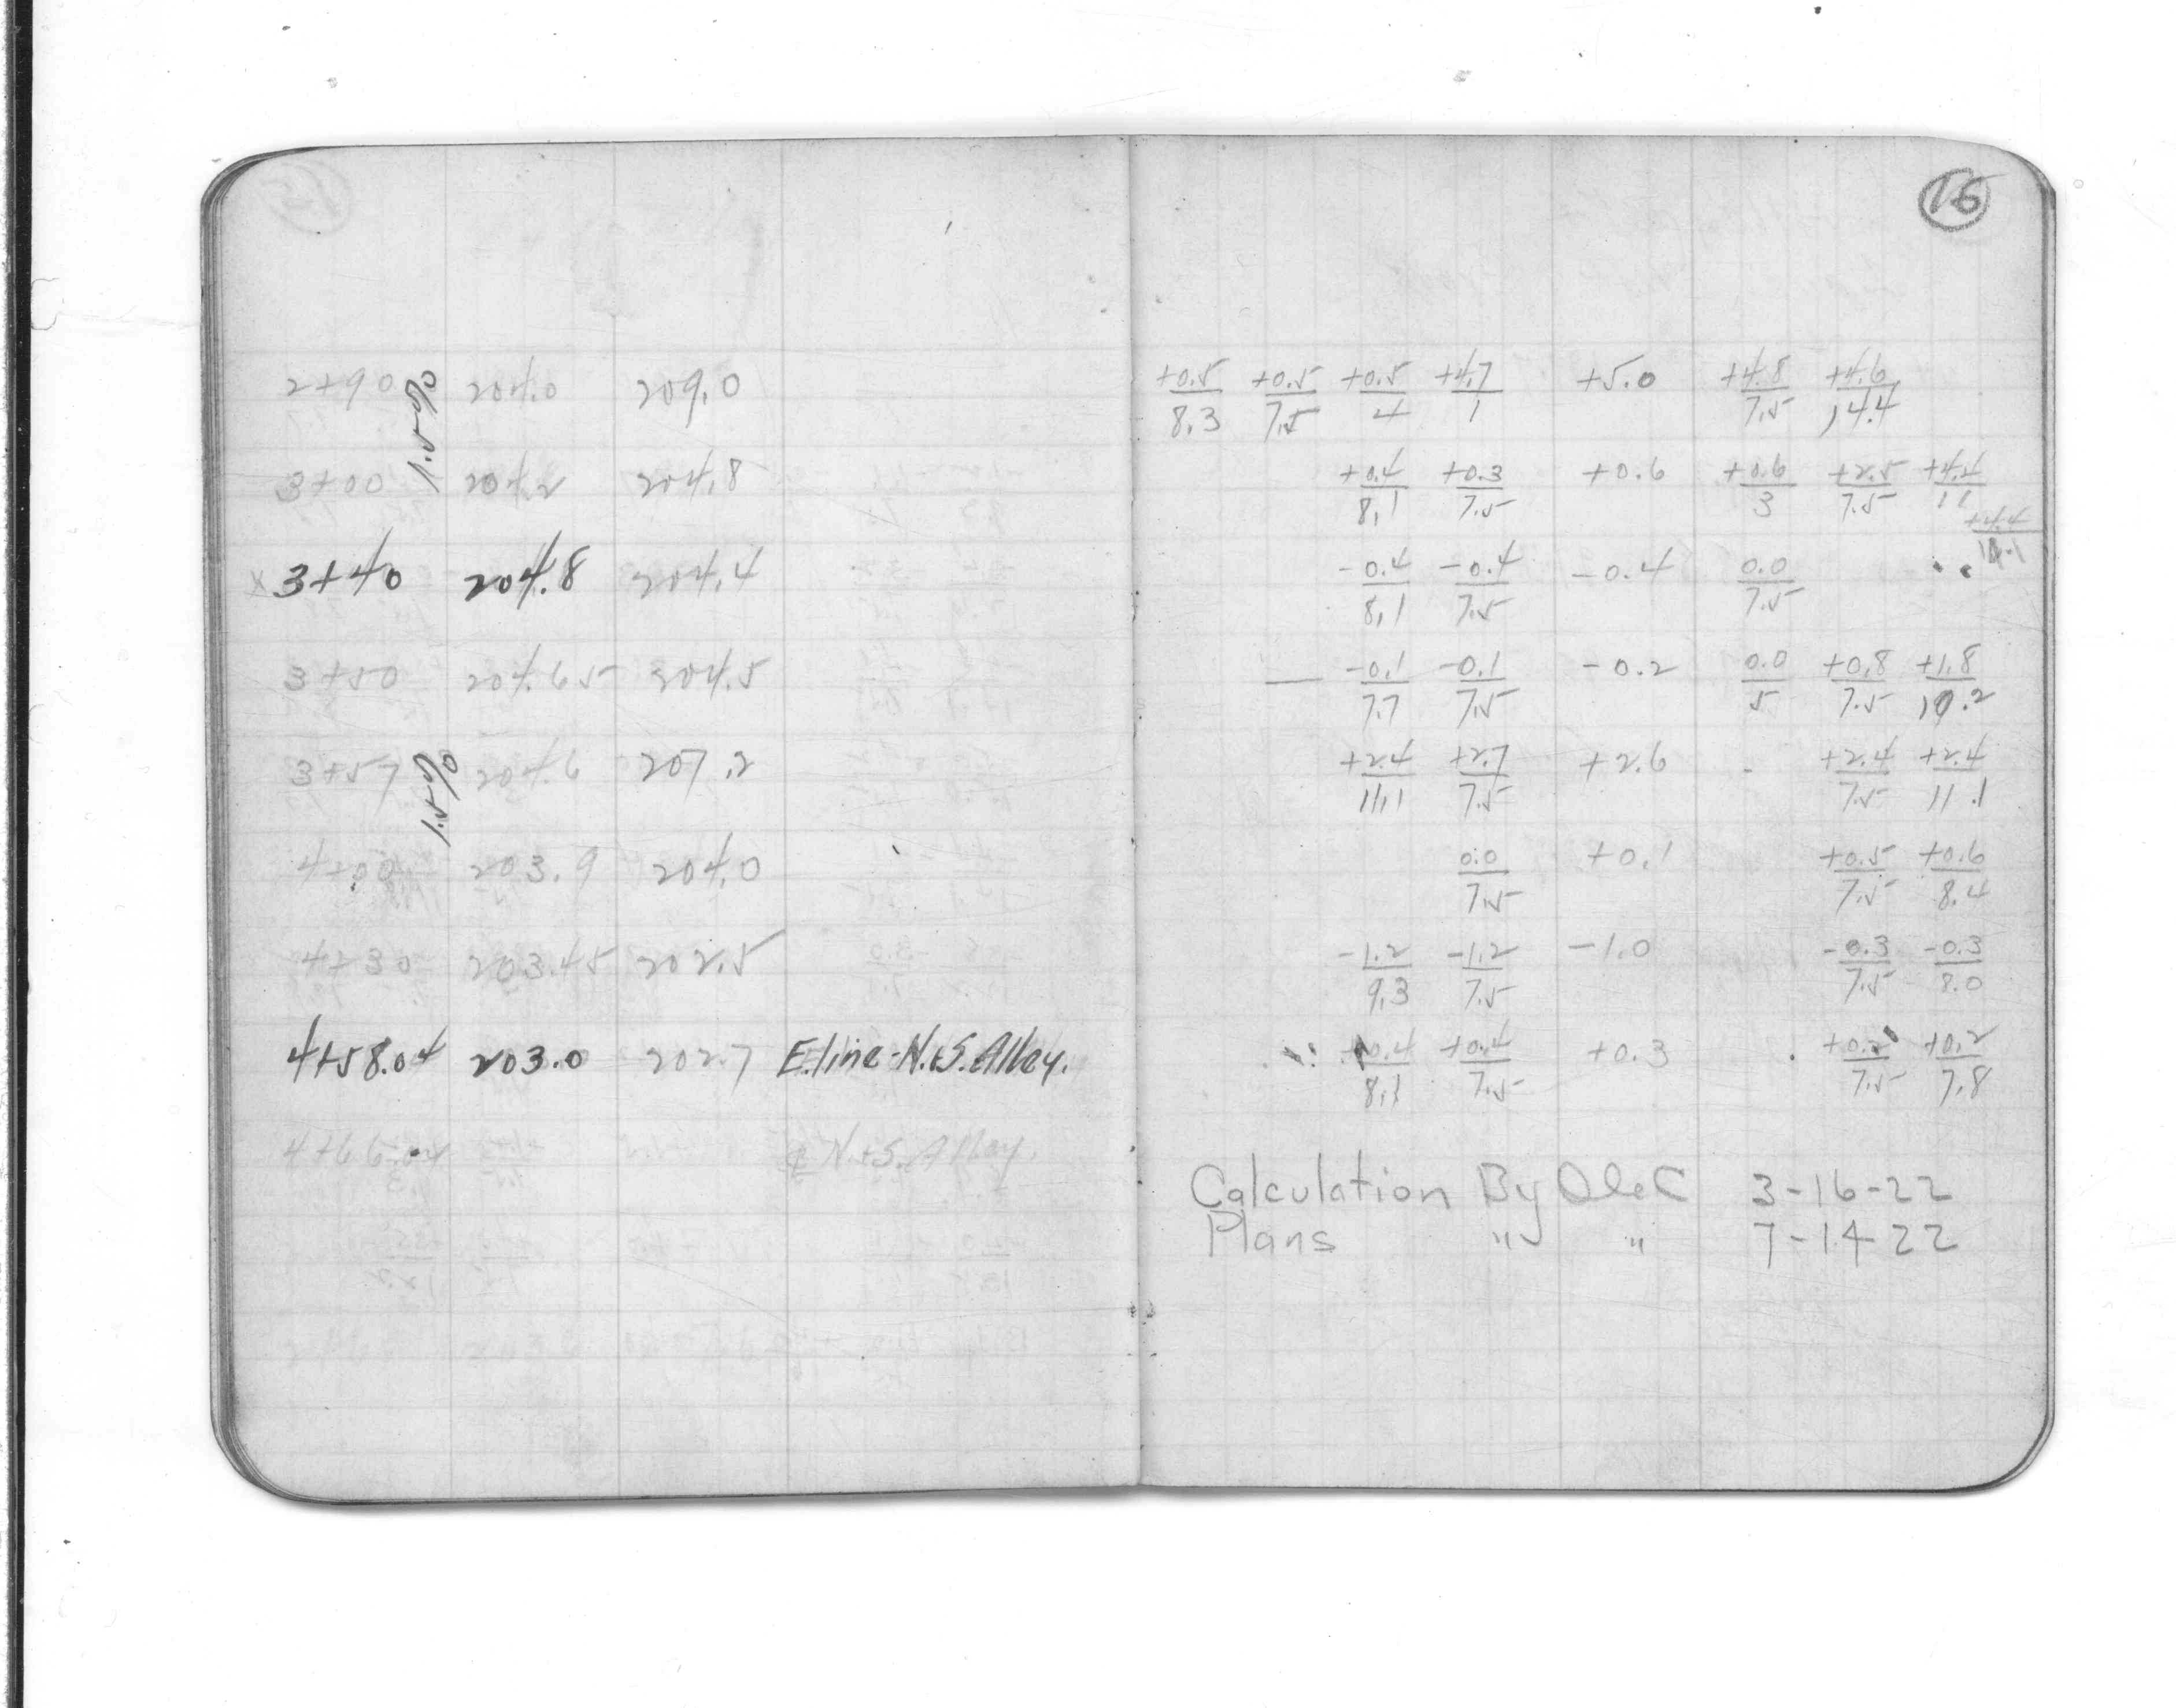 16
2+90 1.5% 204.0 209.0
3+00 204.2 204.8
x 3+40 204.8 204.4
3+50 204.65 204.5
3+57 1.5% 204.6 207.2
4+00 203.9 204.0
4+30 203.45 202.5
4+58.04 203.0 202.7 E.line-N.&S.Alley.
4+66.04 ¢ N.+S. Alley.
+0.5/8.3 +0.5/7.5 +0.5/4 +4.7/1 +5.0 +4.8/7.5 +4.6/14.4
+0.4/8.1 +0.3/7.5 +0.6 +0.6/3 +2.5/7.5 +4.4/11
+4.4/14.1
-0.4/8.1 -0.4/7.5 -0.4 0.0/7.5
— -0.1/7.7 -0.1/7.5 -0.2 0.0/5 +0.8/7.5 +1.8/10.2
+2.4/11.1 +2.7/7.5 +2.6 +2.4/7.5 +2.4/11.1
0.0/7.5 +0.1 +0.5/7.5 +0.6/8.4
-1.2/9.3 -1.2/7.5 -1.0 -0.3/7.5 -0.3/8.0
+0.4/8.1 +0.4/7.5 +0.3 +0.2/7.5 +0.2/7.8
Calculation By O.L.C 3-16-22
Plans " " 7-14-22